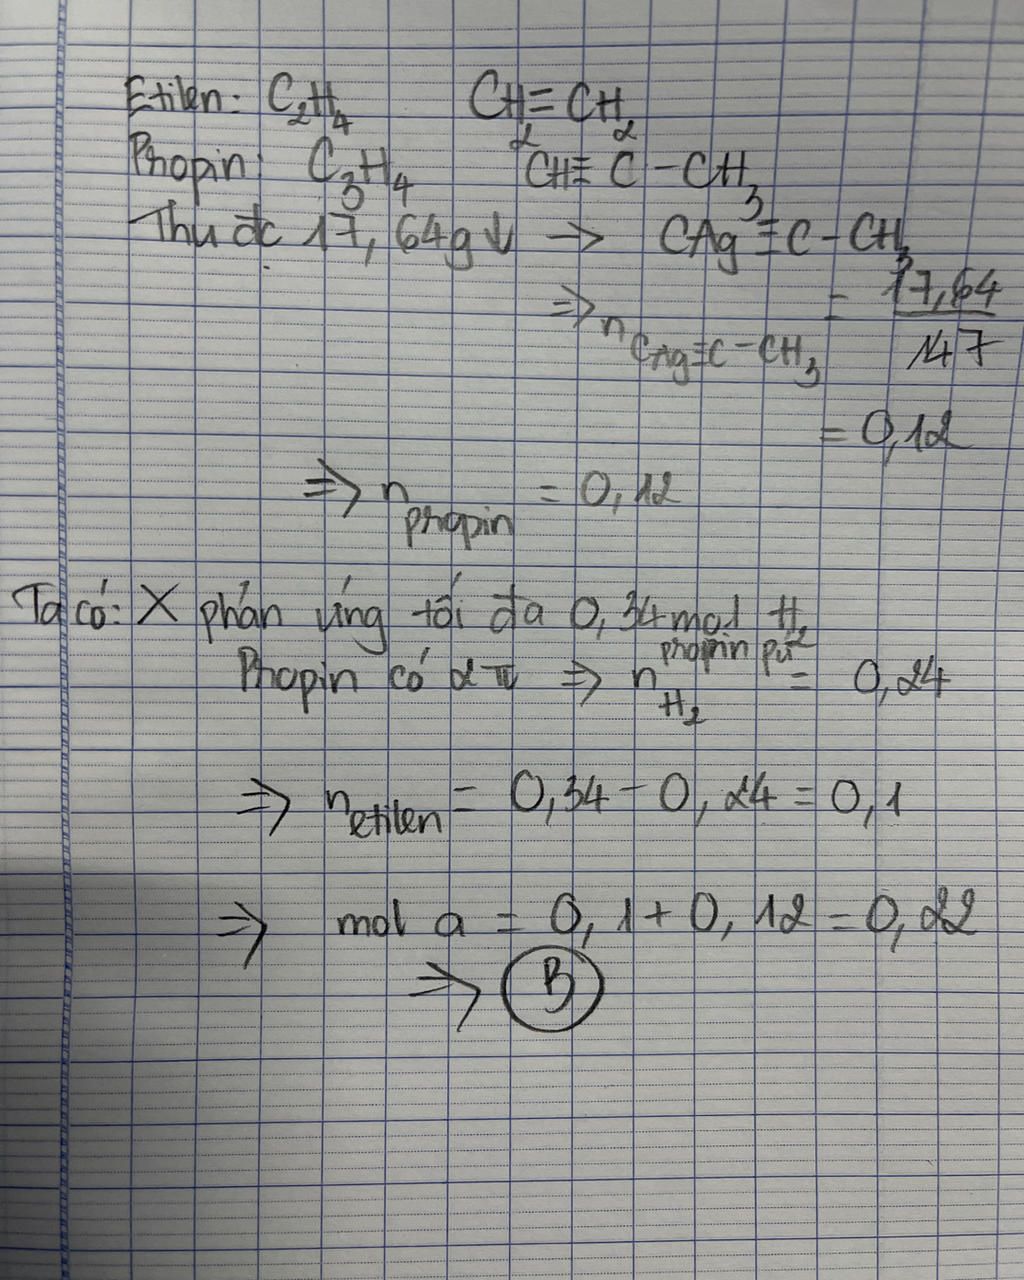 Etilen: C₂H₄ CH₂=CH₂
Propin: C₃H₄ CH≡C-CH₃
Thu đc 17,64g↓ → CAg≡C-CH₃
⇒ n CAg≡C-CH₃ = 17,64 / 147
= 0,12
⇒ n propin = 0,12
Ta có: X phản ứng tối đa 0,34 mol H₂
Propin có 2π ⇒ n H₂ propin pứ = 0,24
⇒ n etilen = 0,34 - 0,24 = 0,1
⇒ mol a = 0,1 + 0,12 = 0,22
⇒ B